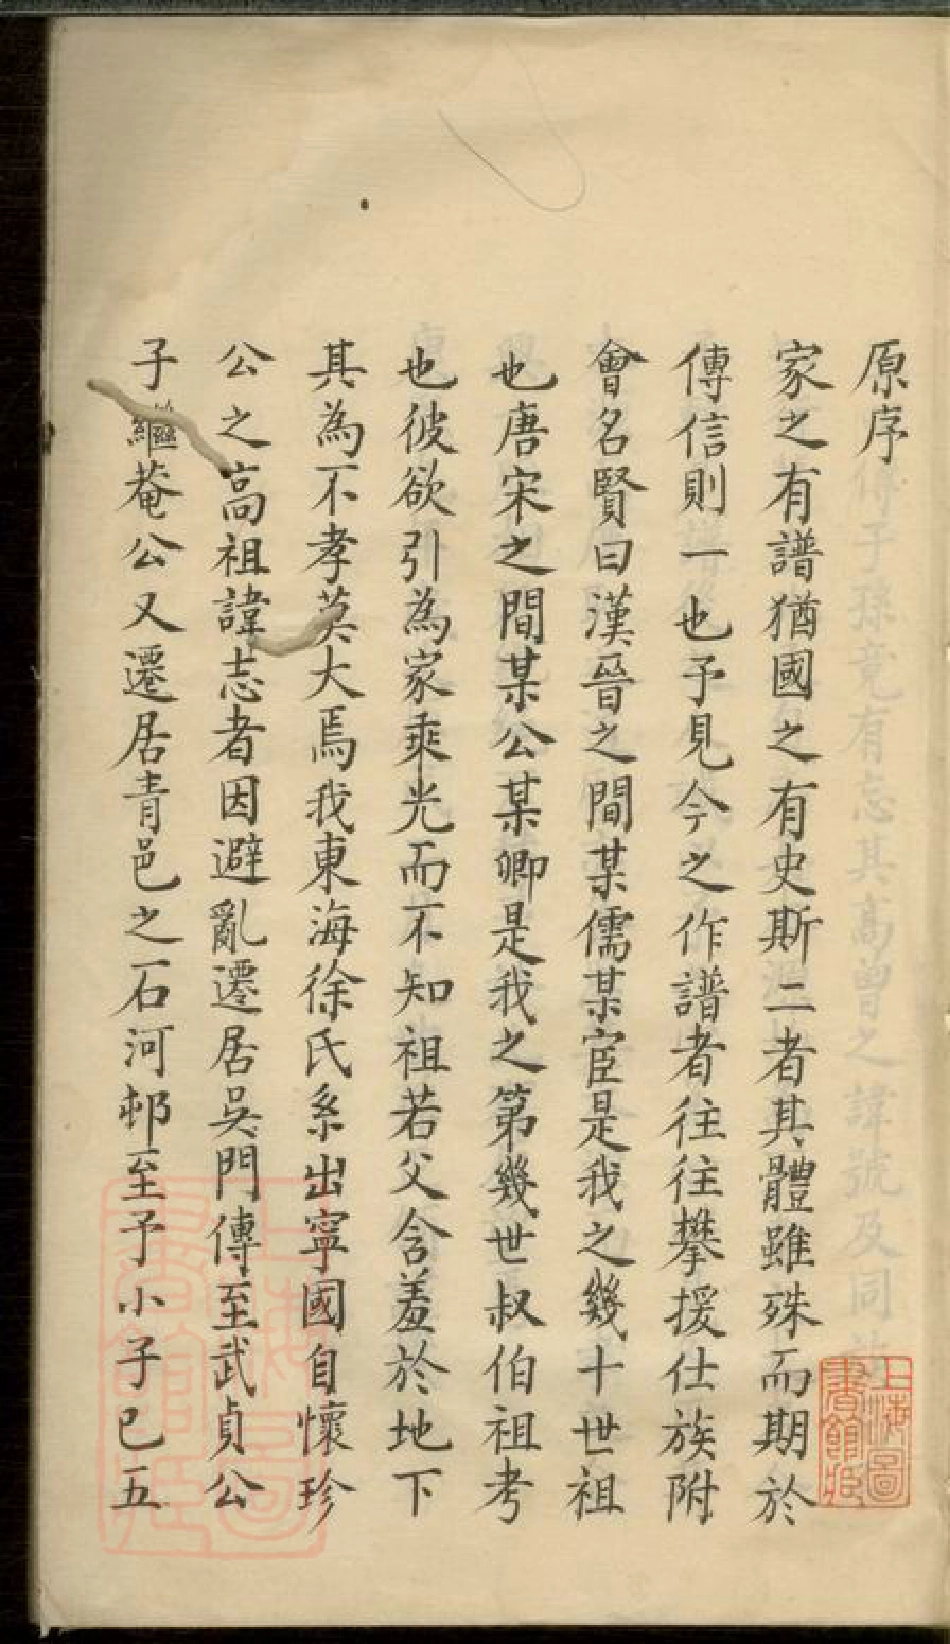 原序
家之有譜猶國之有史斯二者其體雖殊而期於
傳信則一也予見今之作譜者往往攀援仕族附
會名賢曰漢晉之間某儒某宦是我之幾十世祖
也唐宋之間某公某卿是我之第幾世叔伯祖考
也彼欲引為家乘光而不知祖若父含羞於地下
其為不孝莫大焉我東海徐氏系出寧國自懷珍
公之高祖諱志者因避亂遷居吳門傳至武貞公
子繼菴公又遷居青邑之石河邨至予小子已五
上海圖
書館藏
上海圖
書館藏